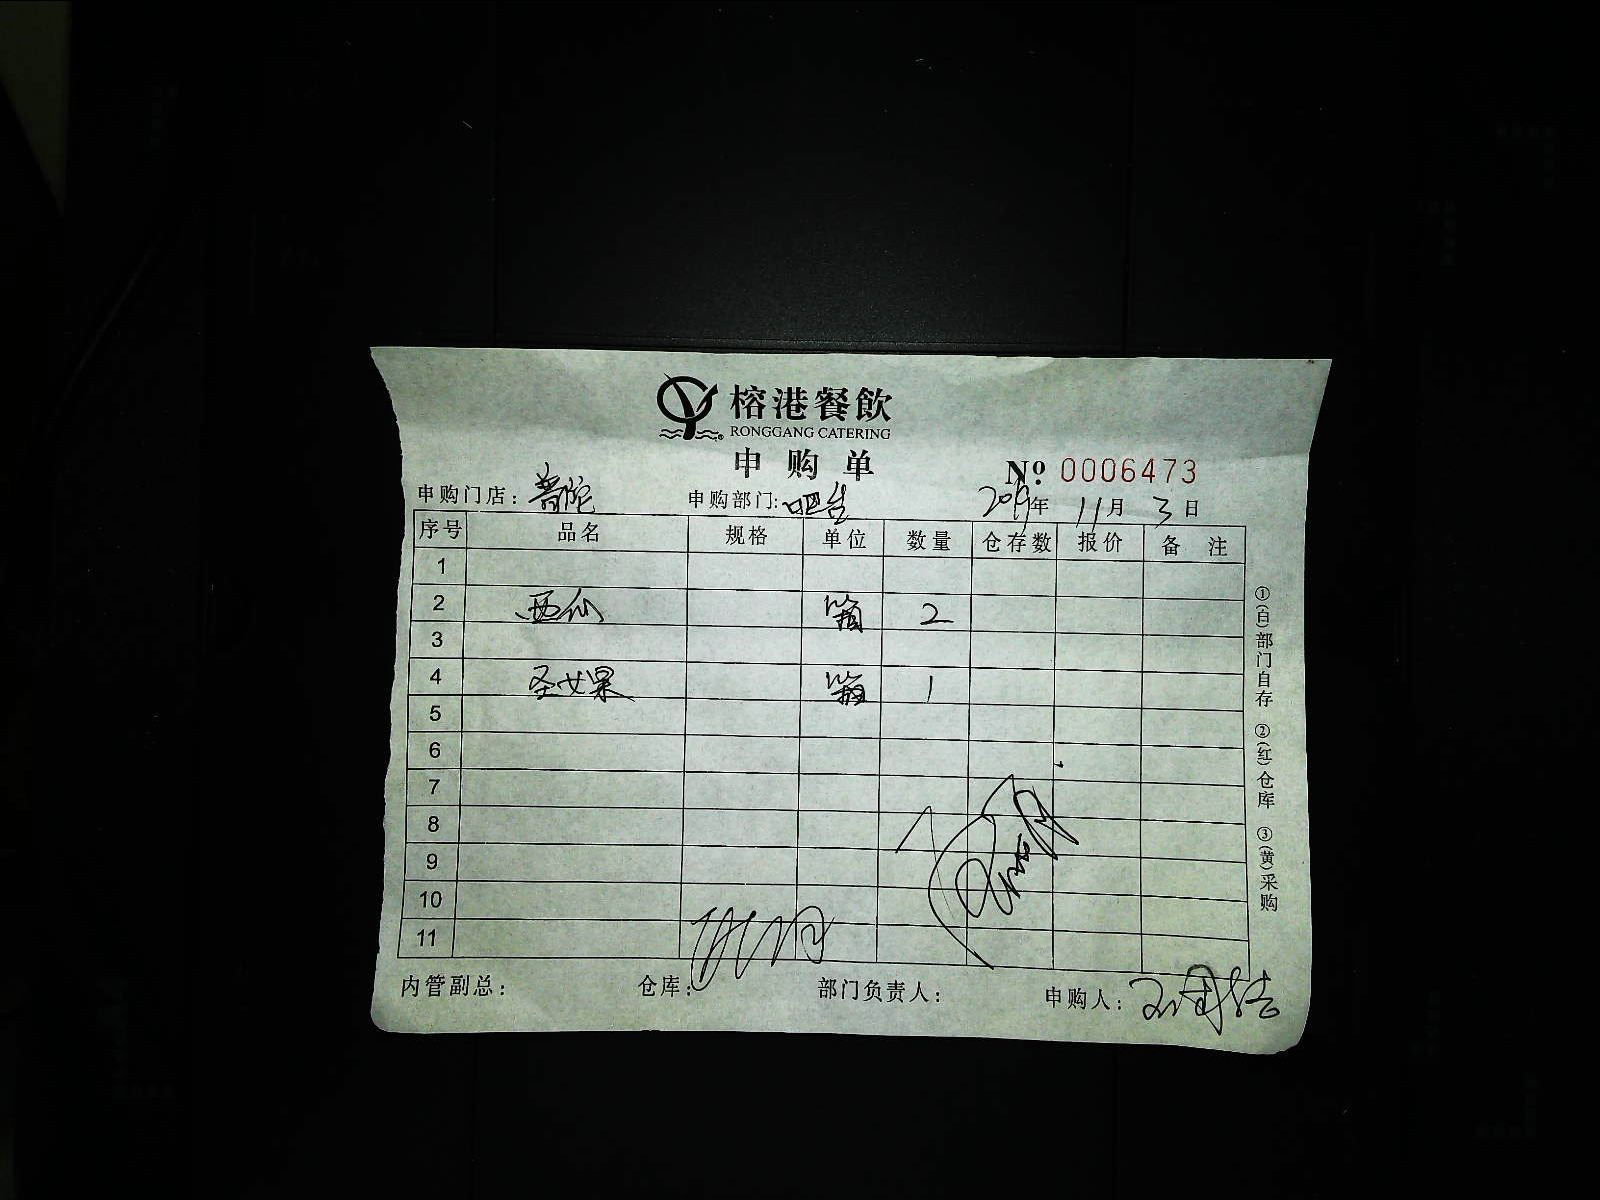 榕港餐飲
RONGGANG CATERING
申购单
№ 0006473
申购门店：普陀 申购部门：吧台 2019年 11月 3日
序号 品名 规格 单位 数量 仓存数 报价 备注
1
2 西仙 箱 2
3
4 圣女果 箱 1
5
6
7
8
9
10
11
内管副总： 仓库： 部门负责人： 申购人：
①(白)部门自存 ②(红)仓库 ③(黄)采购